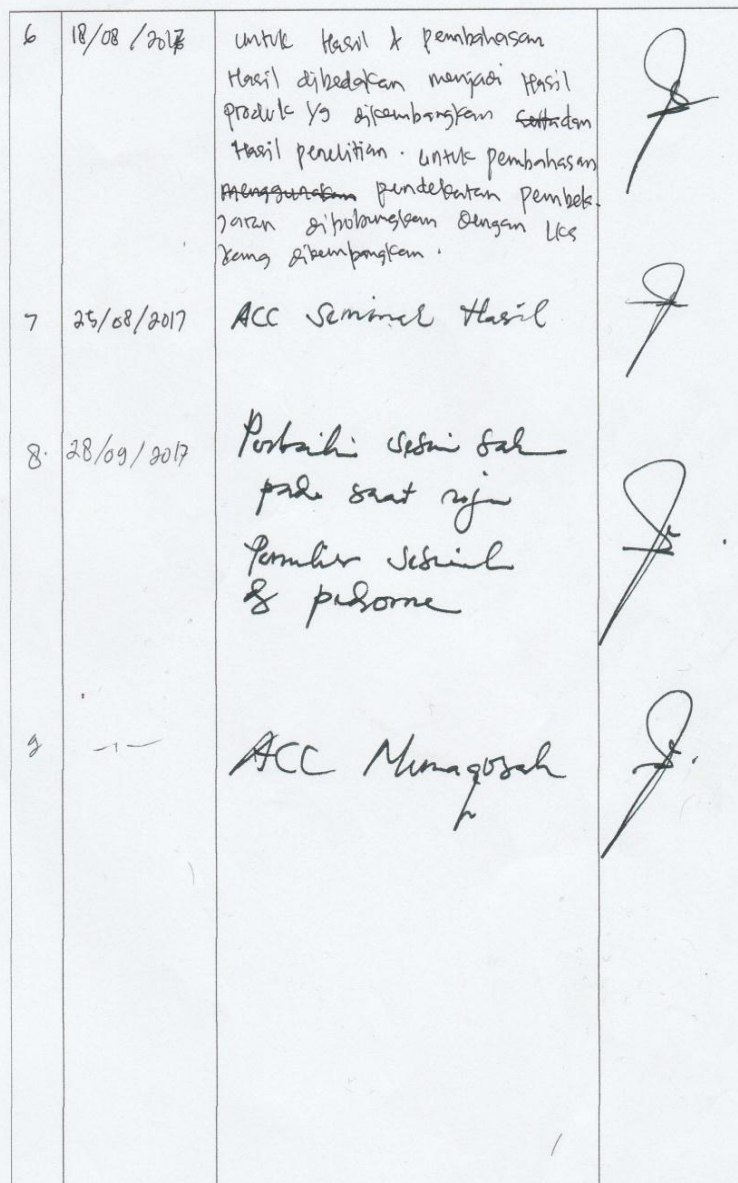 6 18/08/2017 untuk Hasil & pembahasan
Hasil dibedakan menjadi Hasil
produk yg dikembangkan serta dan
Hasil penelitian. untuk pembahasan
menggunakan pendekatan pembela-
jaran dihubungkan dengan LKS
yang dikembangkan.
7 25/08/2017 ACC Seminar Hasil
8. 28/09/2017 Perbaiki sesuai
pada saat
sesuai
9 ACC Munaqosah